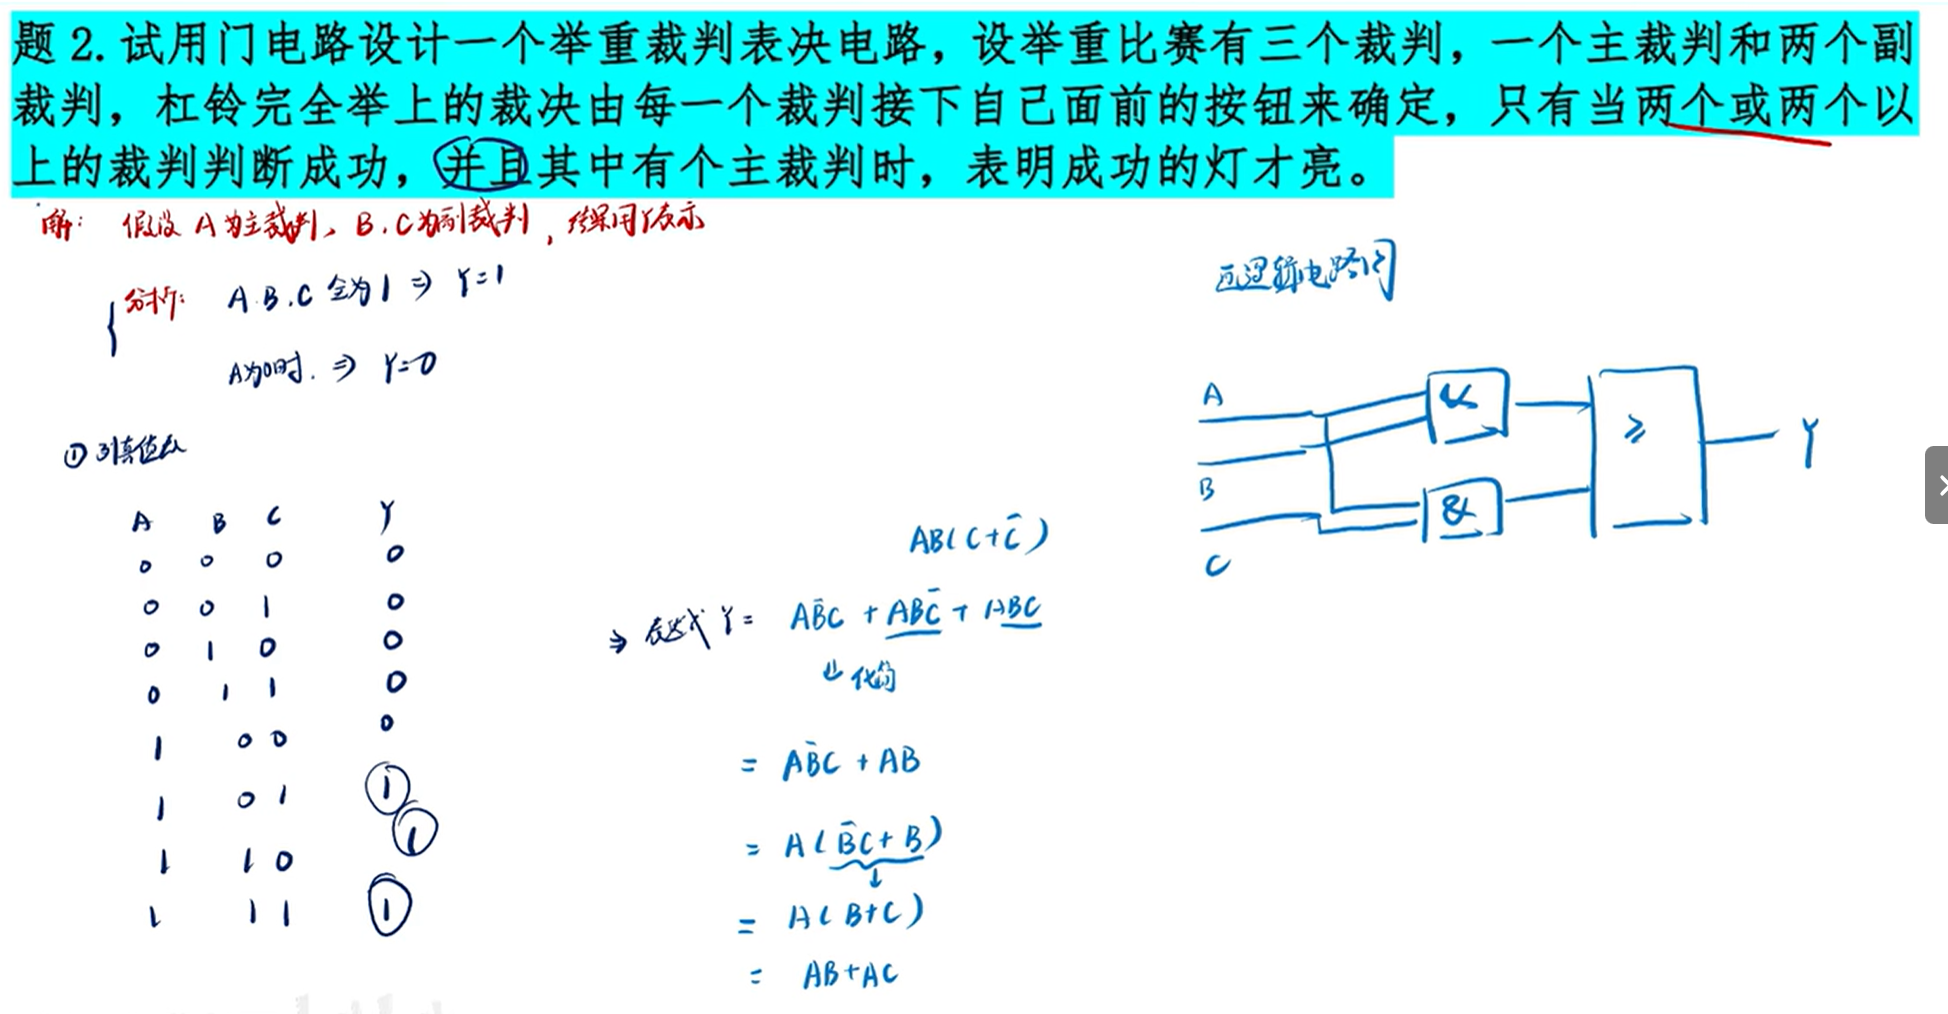 题 2. 试用门电路设计一个举重裁判表决电路，设举重比赛有三个裁判，一个主裁判和两个副
裁判，杠铃完全举上的裁决由每一个裁判接下自己面前的按钮来确定，只有当两个或两个以
上的裁判判断成功，并且其中有个主裁判时，表明成功的灯才亮。
解: 假设 A 为主裁判、B.C为副裁判，结果用Y表示
分析: A.B.C 全为1 ⇒ Y=1
A为0时. ⇒ Y=0
① 列真值表
A B C Y
0 0 0 0
0 0 1 0
0 1 0 0
0 1 1 0
1 0 0 0
1 0 1 1
1 1 0 1
1 1 1 1
AB(C+C̄)
⇒ 表达式 Y= AB̄C + ABC̄ + ABC
↓ 化简
= AB̄C + AB
= A(B̄C+B)
↓
= A(B+C)
= AB+AC
画逻辑电路图
A
B
C
&
&
≥
Y